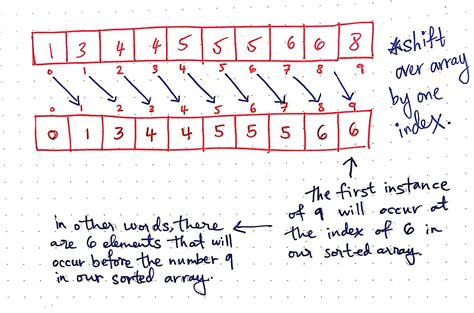 1 3 4 4 5 5 5 6 6 8
0 1 2 3 4 5 6 7 8 9
*shift
over array
by one
index.
0 1 2 3 4 5 6 7 8 9
0 1 3 4 4 5 5 5 6 6
The first instance
of 9 will occur at
the index of 6 in
our sorted array.
in other words, there
are 6 elements that will
occur before the number 9
in our sorted array.